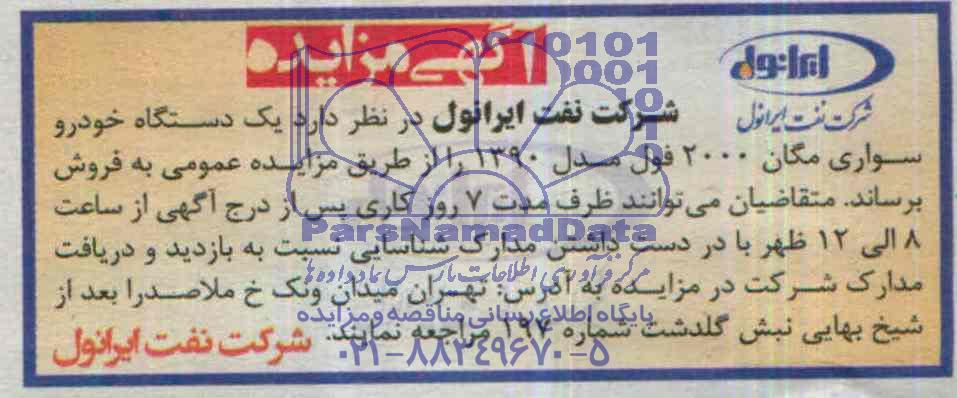 آگهی مزایده
ایرانول
شرکت نفت ایرانول
شرکت نفت ایرانول در نظر دارد یک دستگاه خودرو
سواری مگان ۲۰۰۰ فول مدل ۱۳۹۰ را از طریق مزایده عمومی به فروش
برساند. متقاضیان می‌توانند ظرف مدت ۷ روز کاری پس از درج آگهی از ساعت
۸ الی ۱۲ ظهر با در دست داشتن مدارک شناسایی نسبت به بازدید و دریافت
مدارک شرکت در مزایده به آدرس: تهران میدان ونک خ ملاصدرا بعد از
شیخ بهایی نبش گلدشت شماره ۱۹۷ مراجعه نمایند.
شرکت نفت ایرانول
ParsNamadData
مرکز فرآوری اطلاعات پارس نماد داده ها
پایگاه اطلاع رسانی مناقصه و مزایده
۰۲۱-۸۸۳۴۹۶۷۰-۵